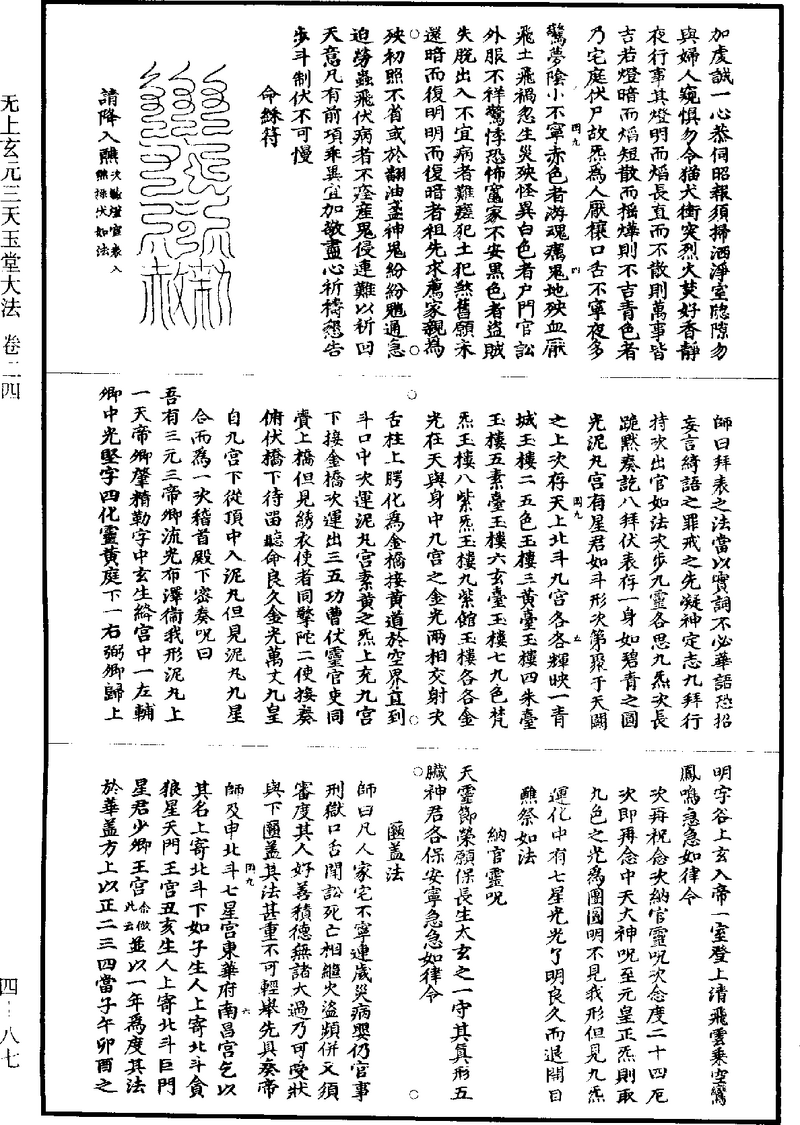 加虔誠一心恭伺昭報須掃洒淨室牕隙勿
與婦人窺惧勿令猫犬衝突烈火焚好香靜
夜行事其燈明而焰長直而不散則萬事皆
吉若燈暗而焰短散而搖爗則不吉青色者
乃宅庭伏尸故炁爲人厭禳口舌不寧夜多
驚夢陰小不寧赤色者游魂癘鬼地殃血厭
飛土飛禍忽生災殃怪異白色者户門官訟
外服不祥驚悸恐怖竈家不安黑色者盜賊
失脫出入不宜病者難瘥犯土犯煞舊願未
還暗而復明明而復暗者祖先求薦家親爲
殃初照不省或於翻油盞神鬼紛紛飃通急
迫勞蟲飛伏病者不痊産鬼侵連難以祈回
天意凡有前項乖異宜加敬盡心祈禱懇告
步斗制伏不可慢
命綠符
勅
赦
請降入醮次散燈宣表入
醮操伏如法
師曰拜表之法當以實詞不必華語恐招
妄言綺語之罪戒之先凝神定志九拜行
持次出官如法次步九靈各思九炁次長
跪默奏訖八拜伏表存一身如碧青之圓
光泥丸宮有星君如斗形次第聚于天關
之上次存天上北斗九宮各各輝映一青
城玉樓二五色玉樓三黃臺玉樓四朱臺
玉樓五素臺玉樓六玄臺玉樓七九色梵
炁玉樓八紫炁玉樓九紫館玉樓各各金
光在天與身中九宮之金光兩相交射次
舌柱上腭化爲金橋接黃道於空界直到
斗口中次運泥丸宮素黃之炁上充九宮
下接金橋次運出三五功曹伏靈官吏同
賫上橋但見綉衣使者同擎陁二使接奏
俯伏橋下待罶聽命良久金光萬丈九皇
自九宮下從頂中入泥丸但見泥丸九星
合而爲一次稽首殿下密奏呪曰
吾有三元三帝卿流光布澤衛我形泥丸上
一天帝卿肇精勒字中玄生絳宮中一左輔
卿中光堅字四化靈黃庭下一右弼卿歸上
明字谷上玄入帝一室登上清飛雲乘空鸞
鳳鳴急急如律令
次再祝念次納官靈呪次念度二十四厄
次即再念中天大神呪至元皇正炁則取
九色之光爲團圓明不見我形但見九炁
運化中有七星光光了明良久而退開目
醮祭如法
納官靈呪
天靈節榮願保長生太玄之一守其真形五
臟神君各保安寧急急如律令
匭盖法
師曰凡人家宅不寧連歲災病嬰仍官事
刑獄口舌鬧訟死亡相繼火盜頻併又須
審度其人好善積德無諸大過乃可受狀
與下匭盖其法甚重不可輕舉先具奏帝
師及申北斗七星宮東華府南昌宮乞以
其名上寄北斗下如子生人上寄北斗貪
狼星天門王宮丑亥生人上寄北斗巨門
星君少卿王宮余倣此云並以一年爲度其法
於華盖方上以正二三四當子午卯酉之
无上玄元三天玉堂大法 卷二四
四－八七